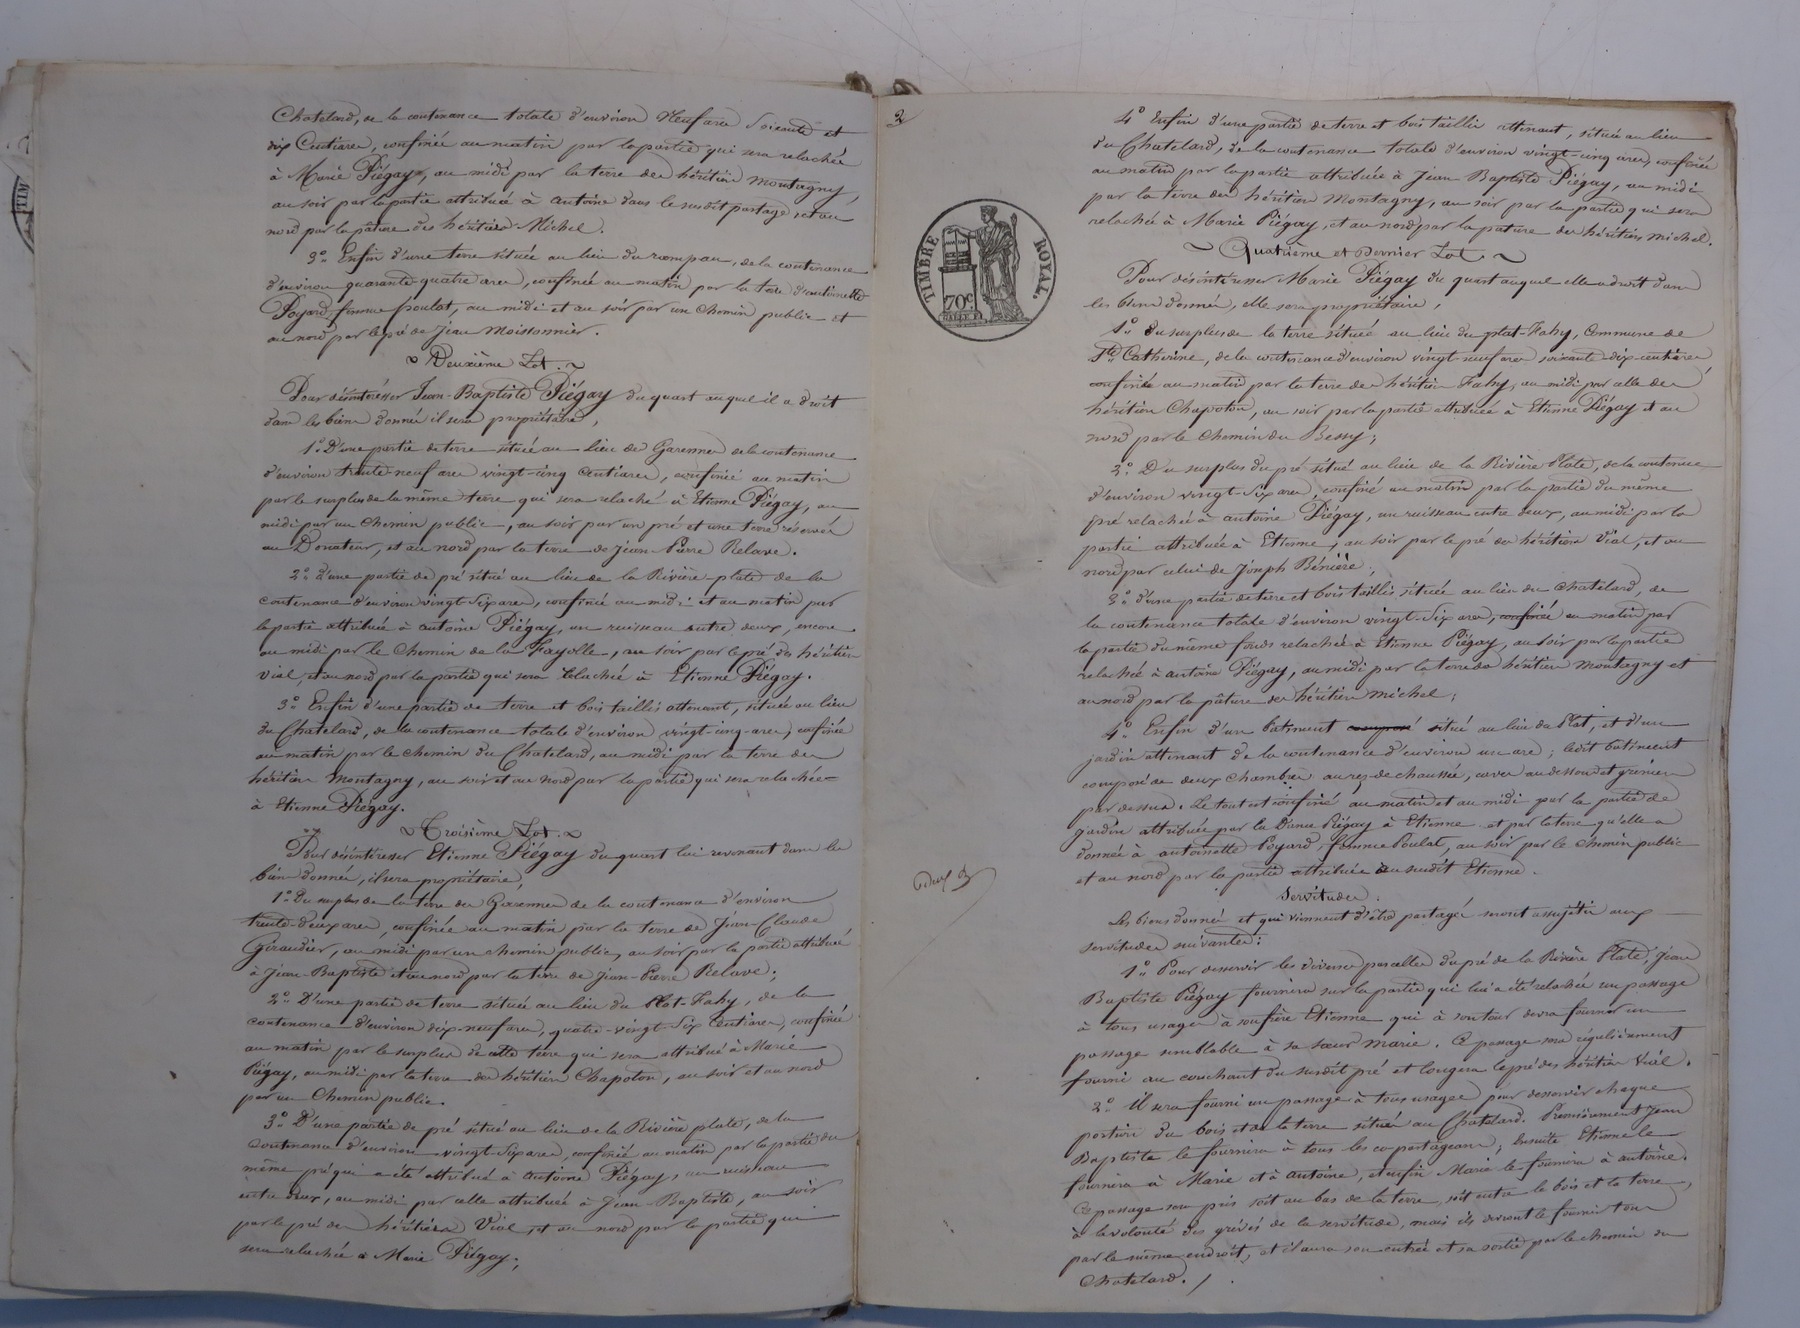 Chatelard, de la contenance totale d'environ Neuf ares Soixante et
dix Centiares, confinée au matin par la partie qui sera relachée
à Marie Piégay, au midi par la terre des héritiers Montagny,
au soir par la partie attribuée à antoine dans le susdit partage, et au
nord par la pâture des héritiers Michel.
3.° Enfin d'une terre située au lieu du rampau, de la contenance
d'environ quarante-quatre ares, confinée au matin par la terre d'antoinette
Poyard femme poulat, au midi et au soir par un Chemin public et
au nord par le pré de Jean Moissonnier.
~ Deuxième Lot. ~
Pour désintéresser Jean-Baptiste Piégay du quart auquel il a droit
dans les biens donnés il sera propriétaire,
1.° D'une partie de terre située au lieu des Garennes de la contenance
d'environ trente-neuf ares vingt-cinq Centiares, confinée au matin
par le surplus de la même terre qui sera relaché à Etienne Piégay, au
midi par un Chemin public, au soir par un pré et une terre réservés
au Donateur, et au nord par la terre de Jean Pierre Relave.
2.° d'une partie de pré situé au lieu de la Rivière-plate de la
contenance d'environ vingt-Six ares, confinée au midi et au matin par
la partie attribuée à antoine Piégay, un ruisseau entre deux, encore
au midi par le Chemin de la Fayolle, au soir par le pré des héritiers
Vial, et au nord par la partie qui sera relachée à Etienne Piégay.
3.° Enfin d'une partie de terre et bois taillis attenant, située au lieu
du Chatelard, de la contenance totale d'environ vingt-cinq ares, confinée
au matin par le chemin du Chatelard, au midi par la terre des
héritiers Montagny, au soir et au nord par la partie qui sera relachée
à Etienne Piégay.
~ Troisième Lot. ~
Pour désintéresser Etienne Piégay du quart lui revenant dans les
biens donnés, il sera propriétaire,
1.° Du surplus de la terre des Garennes de la contenance d'environ
trente-deux ares, confinée au matin par la terre de Jean-Claude
Giraudier, au midi par un chemin public, au soir par la partie attribuée
à Jean-Baptiste et au nord par la terre de Jean-Pierre Relave;
2.° D'une partie de terre située au lieu du Plat-Fahy, de la
contenance d'environ dix-neuf ares, quatre-vingt-Six Centiares, confinée
au matin par le surplus de cette terre qui sera attribué à Marie
Piégay, au midi par la terre des héritiers Chapoton, au soir et au nord
par un Chemin public.
3.° D'une partie de pré situé au lieu de la Rivière plate, de la
contenance d'environ vingt-Six ares, confinée au matin par la partie du
même pré qui a été attribuée à Antoine Piégay, un ruisseau
entre deux, au midi par celle attribuée à Jean-Baptiste, au soir
par le pré des héritiers Vial, et au nord par la partie qui
sera relachée à Marie Piégay;
2
TIMBRE ROYAL.
70c
4.° Enfin d'une partie de terre et bois taillis attenant, située au lieu
du Chatelard, de la contenance totale d'environ vingt-cinq ares, confinée
au matin par la partie attribuée à Jean Baptiste Piégay, au midi
par la terre des héritiers Montagny, au soir par la partie qui sera
relachée à Marie Piégay, et au nord par la pature des héritiers Michel.
~ Quatrième et Dernier Lot. ~
Pour désintéresser Marie Piégay du quart auquel elle a droit dans
les biens donnés, elle sera propriétaire,
1.° du surplus de la terre située au lieu du plat-Fahy, Commune de
Ste Catherine, de la contenance d'environ vingt-neuf ares soixante-dix centiares
confinée au matin par la terre des héritiers Fahy, au midi par celle des
héritiers Chapoton, au soir par la partie attribuée à Etienne Piégay et au
nord par le Chemin du Bessy;
2.° Du surplus du pré situé au lieu de la Rivière Plate, de la contenue
d'environ vingt-Six ares, confiné au matin par la partie du même
pré relachée à antoine Piégay, un ruisseau entre deux, au midi par la
partie attribuée à Etienne, au soir par le pré des héritiers Vial, et au
nord par celui de Joseph Bénière;
3.° d'une partie de terre et bois taillis située au lieu du Chatelard, de
la contenance totale d'environ vingt-Six ares, confinée au matin par
la partie du même fonds relachée à Etienne Piégay, au soir par la partie
relachée à antoine Piégay, au midi par la terre des héritiers Montagny et
au nord par la pâture des héritiers Michel;
4.° Enfin d'un batiment composé situé au lieu du Plat, et d'un
jardin attenant de la contenance d'environ un are; ledit batiment
composé de deux Chambres au rez-de-chaussée, caves au dessous et greniers
par dessus. Le tout est confiné au matin et au midi par la partie de
jardin attribuée par la Danve Piégay à Etienne et par la terre qu'elle a
donnée à antoinette Poyard, femme Poulat, au soir par le chemin public
et au nord par la partie attribuée au susdit Etienne.
Servitudes.
Les biens donnés et qui viennent d'être partagés seront assujétis aux
servitudes suivantes:
1.° Pour desservir les diverses parcelles du pré de la Rivière Plate, Jean
Baptiste Piégay fournira sur la partie qui lui a été relachée un passage
à tous usages à son frère Etienne qui à son tour devra fournir un
passage semblable à sa sœur Marie. Ce passage sera régulièrement
fourni au couchant du susdit pré et longera le pré des héritiers Vial.
2.° Il sera fourni un passage à tous usages pour desservir chaque
portion du bois et de la terre située au Chatelard. Premièrement Jean
Baptiste le fournira à tous les co-partageans; Ensuite Etienne le
fournira à Marie et à Antoine, et enfin Marie le fournira à antoine.
Ce passage sera pris soit au bas de la terre, soit entre le bois et la terre,
à la volonté des grévés de la servitude, mais ils devront le fournir tous
par le même endroit, et il aura son entrée et sa sortie par le chemin du
Chatelard. /.